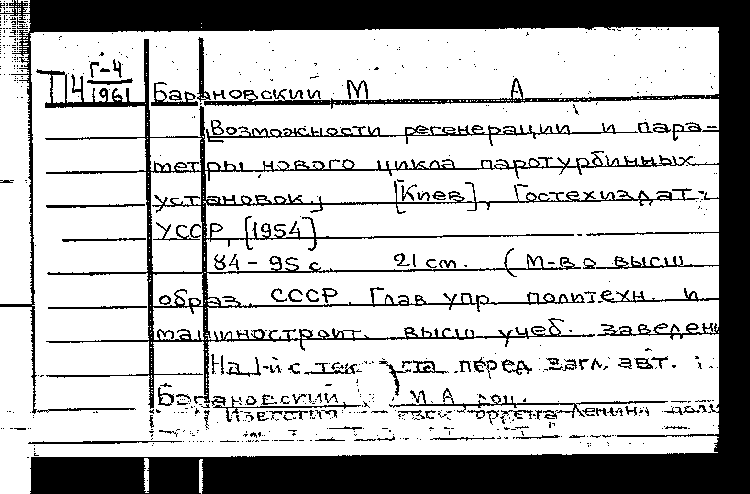 П4 Г-4
1961
Барановский, М А
Возможности регенерации и пара-
метры нового цикла паротурбинных
установок, [Киев], Гостехиздат
УССР, [1954]
84-95 с. 21 см. (М-во высш
образ. СССР. Глав упр. политехн. и
машиностроит. высш учеб. заведен
На 1-й с текста перед загл. авт. :
Барановский, М.А, доц.
Известия ордена Ленина поли